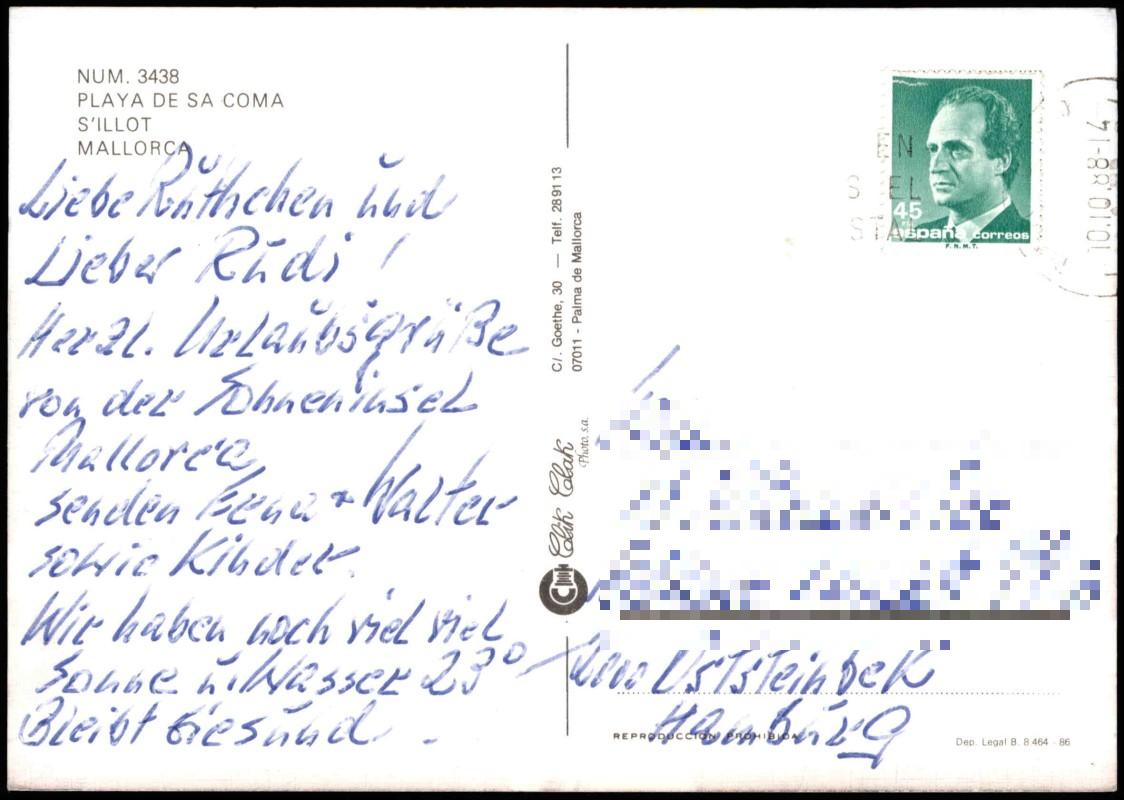 NUM. 3438
PLAYA DE SA COMA
S'ILLOT
MALLORCA
Liebe Rüthchen und
Lieber Rudi!
Herzl. Urlaubsgrüße
von der Sonneninsel
Mallorca
senden + Walter
sowie Kinder.
Wir haben noch viel viel
Sonne u. Wasser 23°
Bleibt Gesund.
C/. Goethe, 30 — Telf. 289113
07011 - Palma de Mallorca
Clik Clak
Photo, s.a.
45
españa correos
F.N.M.T.
10.10.88-14
Oststeinbek
Hamburg
REPRODUCCION PROHIBIDA
Dep. Legal B. 8.464 - 86